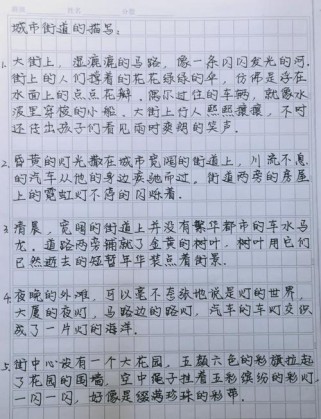 城市街道的描写:
1. 大街上,湿漉漉的马路,像一条闪闪发光的河.
街上的人们撑着的花花绿绿的伞,仿佛是浮在
水面上的点点花瓣.偶尔过往的车辆,就像水
波里穿梭的小船.大街上行人熙熙攘攘,不时
还传出孩子们看见雨时爽朗的笑声.
2. 昏黄的灯光散在城市宽阔的街道上,川流不息
的汽车从他的身边疾驰而过.街道两旁的房屋
上的霓虹灯不停的闪烁着.
3. 清晨,宽阔的街道上并没有繁华都市的车水马
龙.道路两旁铺就了金黄的树叶,树叶用它们
已然逝去的短暂年华装点着街景.
4. 夜晚的外滩,可以毫不夸张地说是灯的世界,
大厦的夜灯,马路边的路灯,汽车的车灯交织
成了一片灯的海洋.
5. 街中心设有一个大花园,五颜六色的彩旗拉起
了花园的围墙,空中绳子挂着五彩缤纷的彩灯,
一闪一闪,好像是缀满珍珠的彩带.